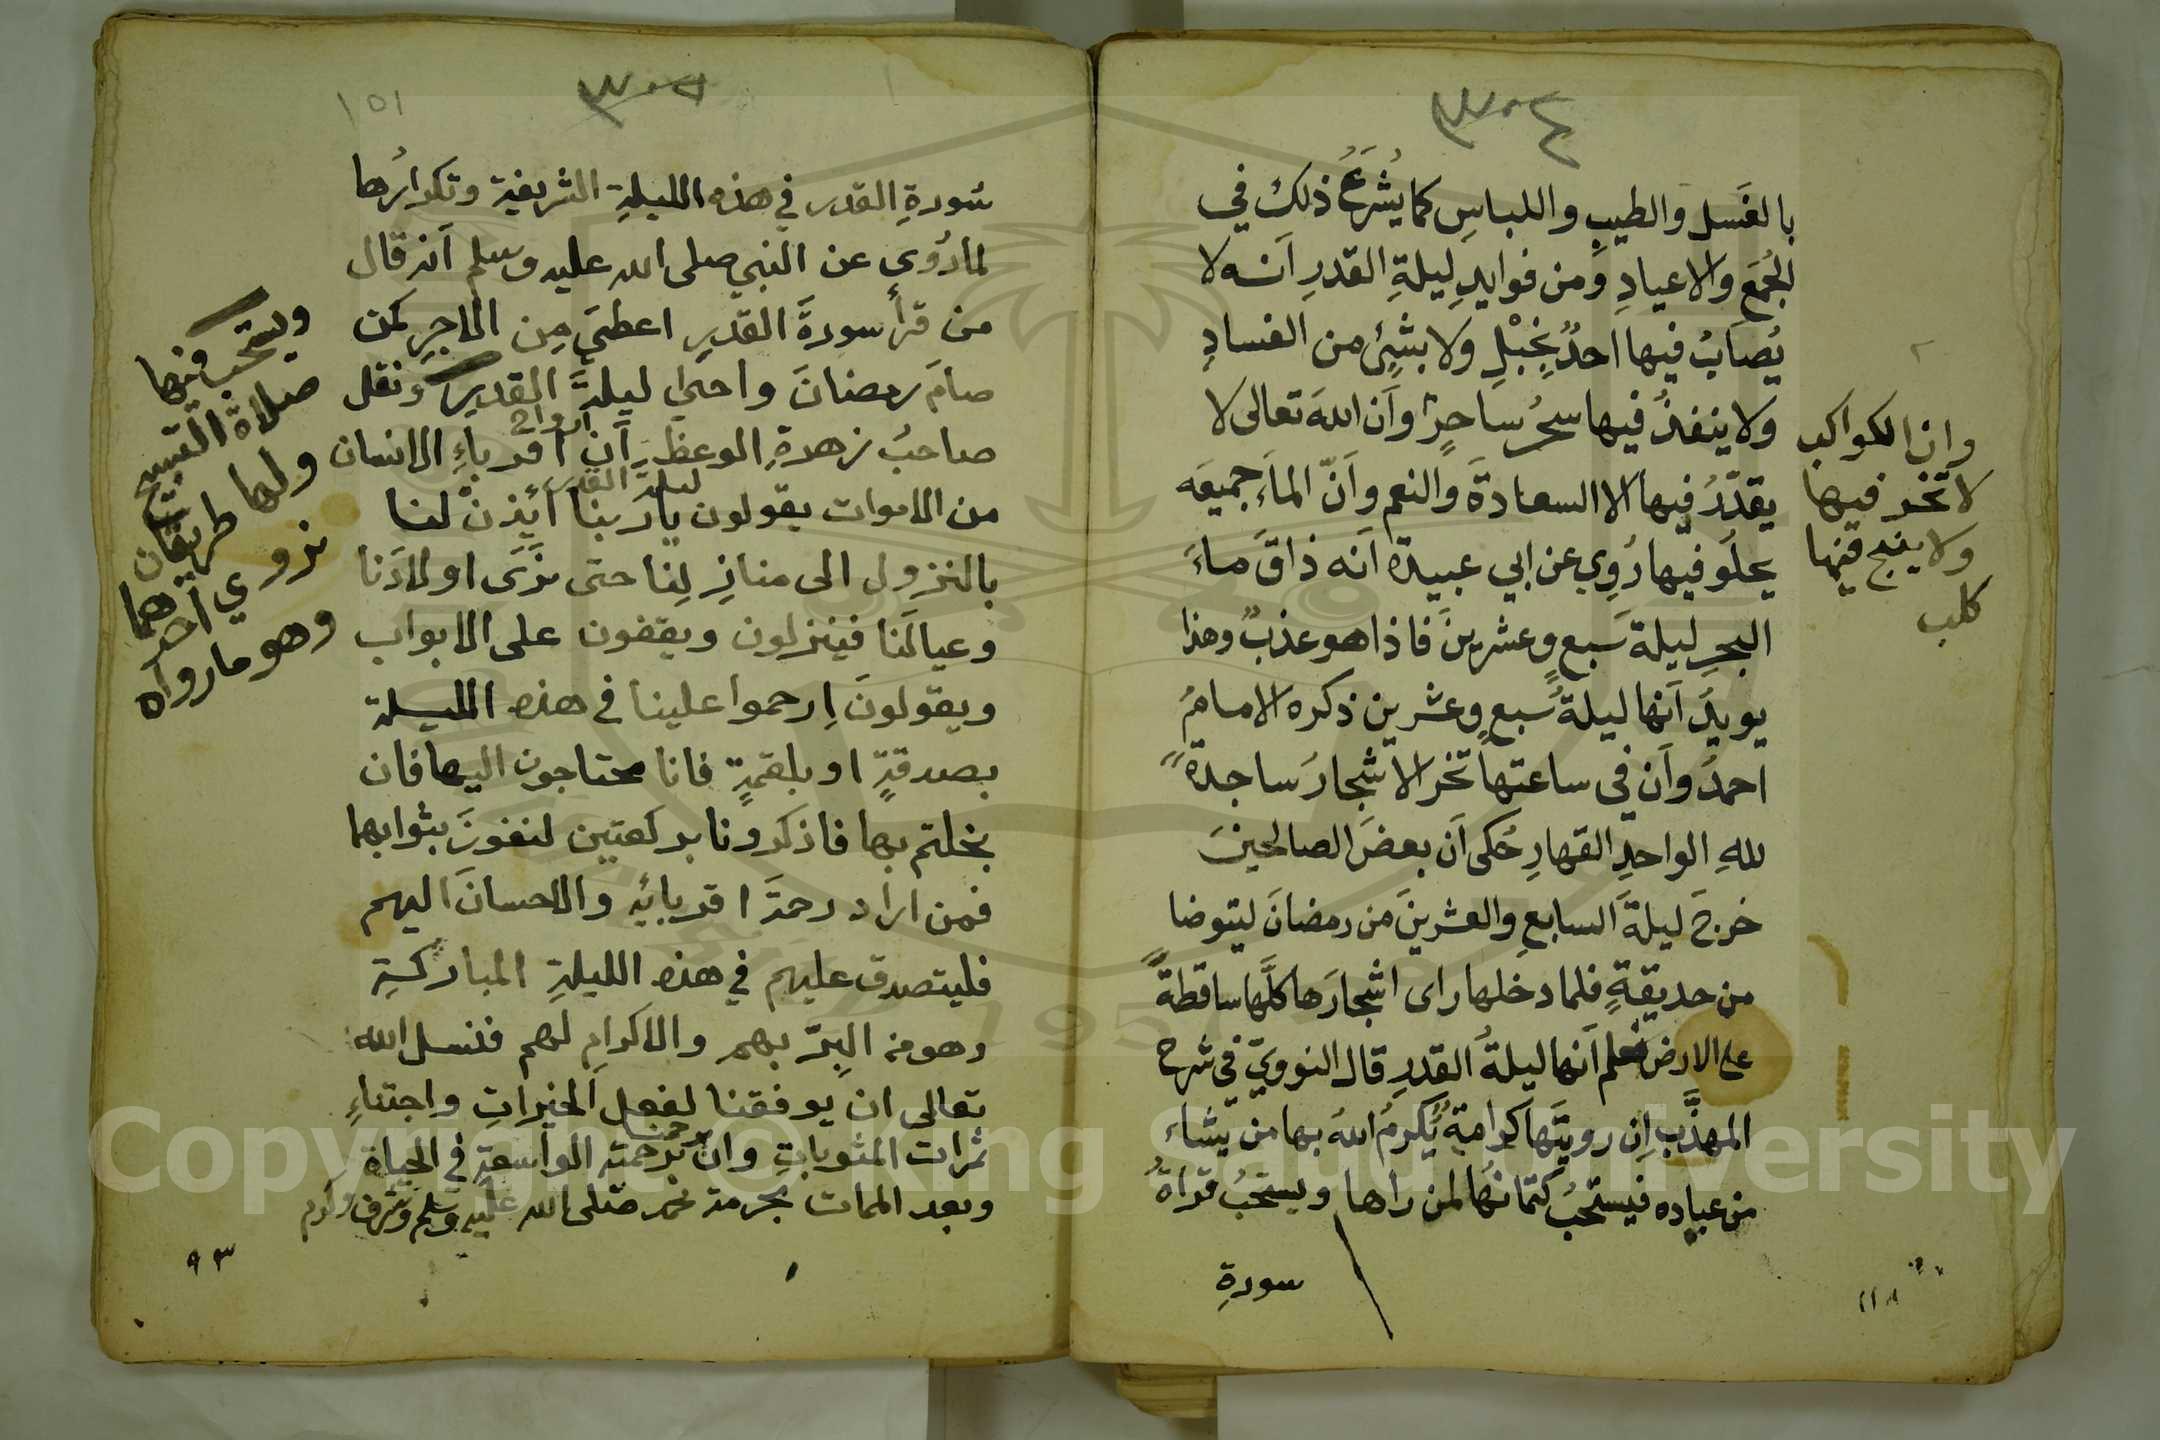 ٣٠٤
بالغَسل والطيبِ واللباسِ كما يُشرَعُ ذلك في
الجُمَعِ والاعيادِ ومن فوايدِ ليلةِ القدرِ اَنه لا
يُصَابُ فيها احدٌ بخَبْلٍ ولا بشيٍء من الفسادِ
ولا ينفذُ فيها سحرُ ساحرٍ واَن اللهَ تعالى لا
يقدّرُ فيها الا السعادةَ والنعم واَنّ الماءَ جميعَه
يحلُو فيها رُوِي عن ابي عبيدة اَنه ذاقَ ماءَ
البحرِ ليلةَ سَبعٍ وعشرينَ فاذا هو عذبٌ وهذا
يويدَ اَنها ليلةُ سَبعٍ وعشرين ذكره الامامُ
احمدُ واَن في ساعتها تخر الاشجارُ ساجدةً
للهِ الواحدِ القهارِ حُكى اَن بعضَ الصالحينَ
خرجَ ليلةَ السابعِ والعشرينَ من رمضانَ ليتوضا
من حديقةٍ فلما دخلها راى اشجارَها كلَّها ساقطةً
على الارض فعلم اَنها ليلةُ القدرِ قال النوويّ في شرح
المهذَّب اِن رويتَها كرامةٌ يُكرمُ اللهُ بها من يشاء
من عباده فيستحبُ كتمانُها لمن راها ويستحبُ قراةُ
سورةِ
وان الكواكب
لا تخر فيها
ولا ينبح فيها
كلب
١١٨
١٥١
سُورةِ القدر في هذه الليلةِ الشريفة وتكرارُها
لما رُوي عن النبي صلى الله عليه وسلم اَنه قال
من قرأ سورةَ القدرِ اعطيَ مِن الاجرِ كمن
صامَ رمضانَ واحيا ليلةَ القدرِ ونقل
صاحبُ زهدةِ الوعظ اَن ارواح اقرباءِ الانسان
من الاموات يقولون ليلة القدر يا رَبنا ائذِنْ لنا
بالنزول الى منازلِنا حتى نرَى اولادَنا
وعيالَنا فينزلون ويقفون على الابواب
ويقولونَ اِرحموا علينا في هذه الليلة
بصدقةٍ او بلقمةٍ فانا محتاجون اليها فان
بخلتم بها فاذكرونا بركعتين لنفوزَ بثوابهما
فمن اراد رحمةَ اقربائِه والاحسانَ اليهم
فليتصدق عليهم في هذه الليلةِ المباركةِ
وهو من البِرّ بهم والاكرامِ لهم فنسل الله
تعالى ان يوفقنا لفعل الخيراتِ واجتناءِ
ثمرات المثوباتِ وان يرحمنا برحمته الواسعةِ في الحياة
وبعد الممات بحرمة محمد صلى الله عليه وسلم وشرف وكرم
ويستحب فيها
صلاة التسبيح
ولها طريقان
نروي احدهما
وهو ما رواه
٩٣
Copyright © King Saud University
1957